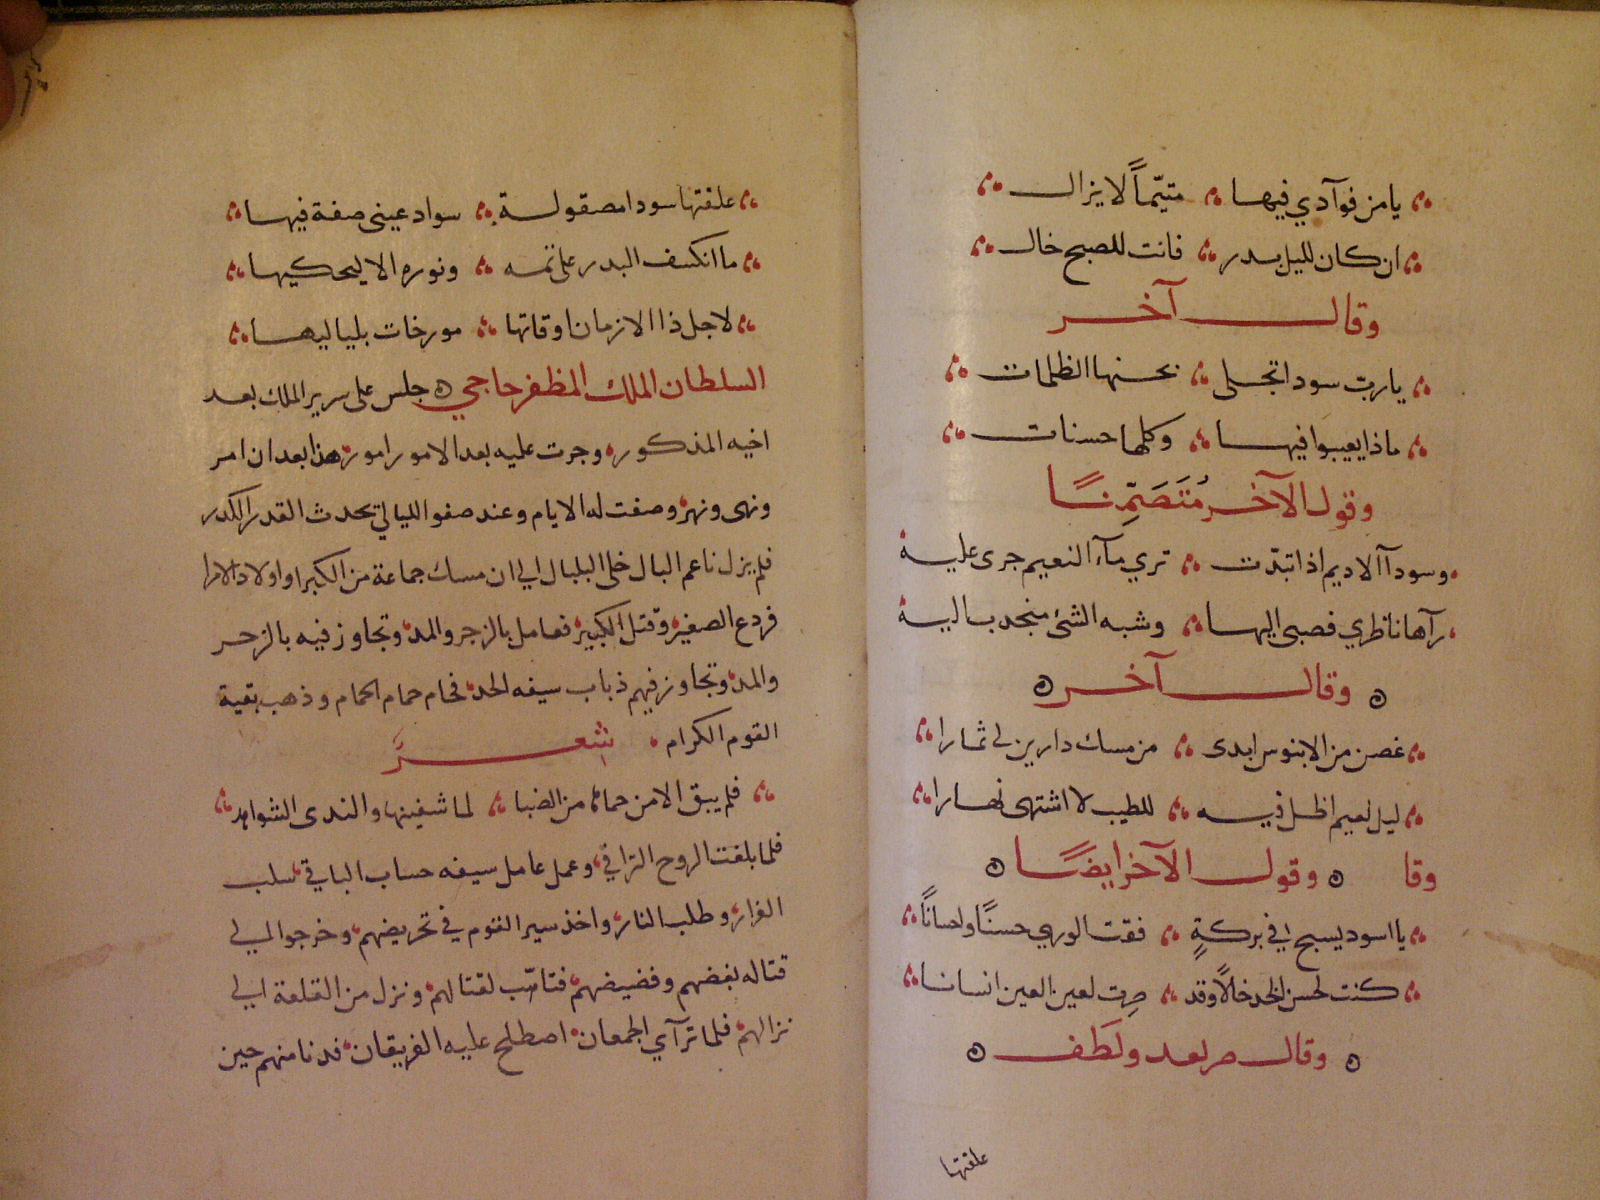 يا من فوآدي فيها متيّماً لا يزال
ان كان لليل بدر فانت للصبح خال
وقال آخر
يا ربّ سودا تجلى بحسنها الظلمات
ماذا يعيبوا فيها وكلها حسنات
وقول الآخر مُتَضَمِّنًا
وسودآ الاديم اذا تبدّت تري مآء النعيم جرى عليه
رآها ناظري فصبى اليها وشبه الشئ منجدب اليه
وقال آخر
غصن من الابنوس ابدى من مسك دارين لي ثمارا
ليل نعيم اظل فيه للطيب لا اشتهى نهارا
وقا وقول الآخر ايضًا
يا اسود يسبح في بركةٍ فقت الوري حسنًا واحسانًا
كنت لحسن الخد خالًا وقد صرت لعين العين انسانا
وقال ولَطف
علقتها
علقتها سودا مصقولة سواد عينى صفة فيها
ما انكسف البدر على تمه ونوره الا ليحكيها
لاجل ذا الازمان اوقاتها مورخات بلياليها
السلطان الملك المظفر حاجي جلس على سرير الملك بعد
اخيه المذكور وجرت عليه بعد الامور امور هذا بعد ان امر
ونهى ونهر وصفت له الايام وعند صفو الليالي يحدث القدر الكدر
فلم يزل ناعم البال خلى البلبال الى ان مسك جماعة من الكبرا واولاد الامرا
فردع الصغير وقتل الكبير فعامل بالزجر والمد وتجاوز فيه بالزجر
والمد وتجاوز فيهم ذباب سيفه الحد فحام حمام الحمام وذهب بقية
القوم الكرام شعر
فلم يبق الا من حماها من الضبا لما شفيتها والندى الشواهد
فلما بلغت الروح التراقي وعمل عامل سيفه حساب الباقي سلب
القرار وطلب النار واخذ سير القوم في تحريضهم وخرجوا الي
قتاله بفضهم وفضيضهم فتاهّب لقتالهم ونزل من القلعة الي
نزالهم فلما ترآي الجمعان اصطلح عليه الفريقان فدنا منهم حين